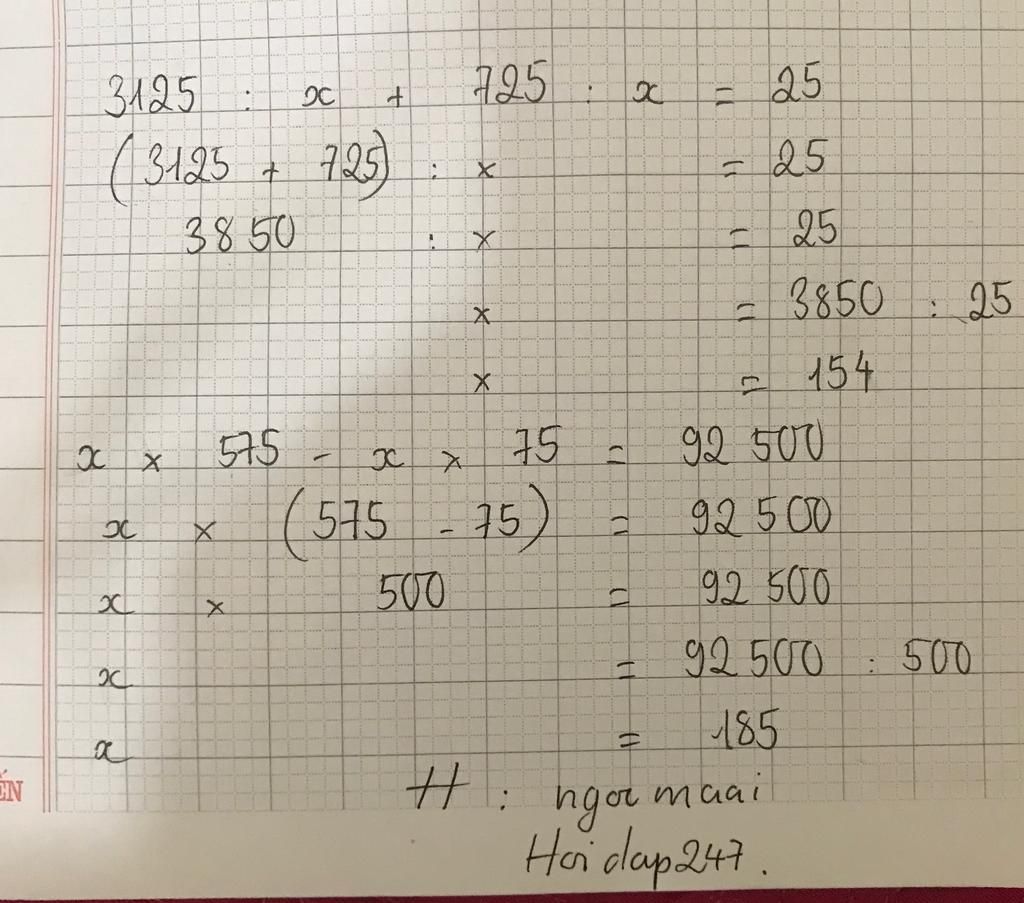 3125 : x + 725 : x = 25
(3125 + 725) : x = 25
3850 : x = 25
x = 3850 : 25
x = 154
x × 575 - x × 75 = 92 500
x × (575 - 75) = 92 500
x × 500 = 92 500
x = 92 500 : 500
x = 185
H : ngoc maai
ẾN
Hoi dap247.